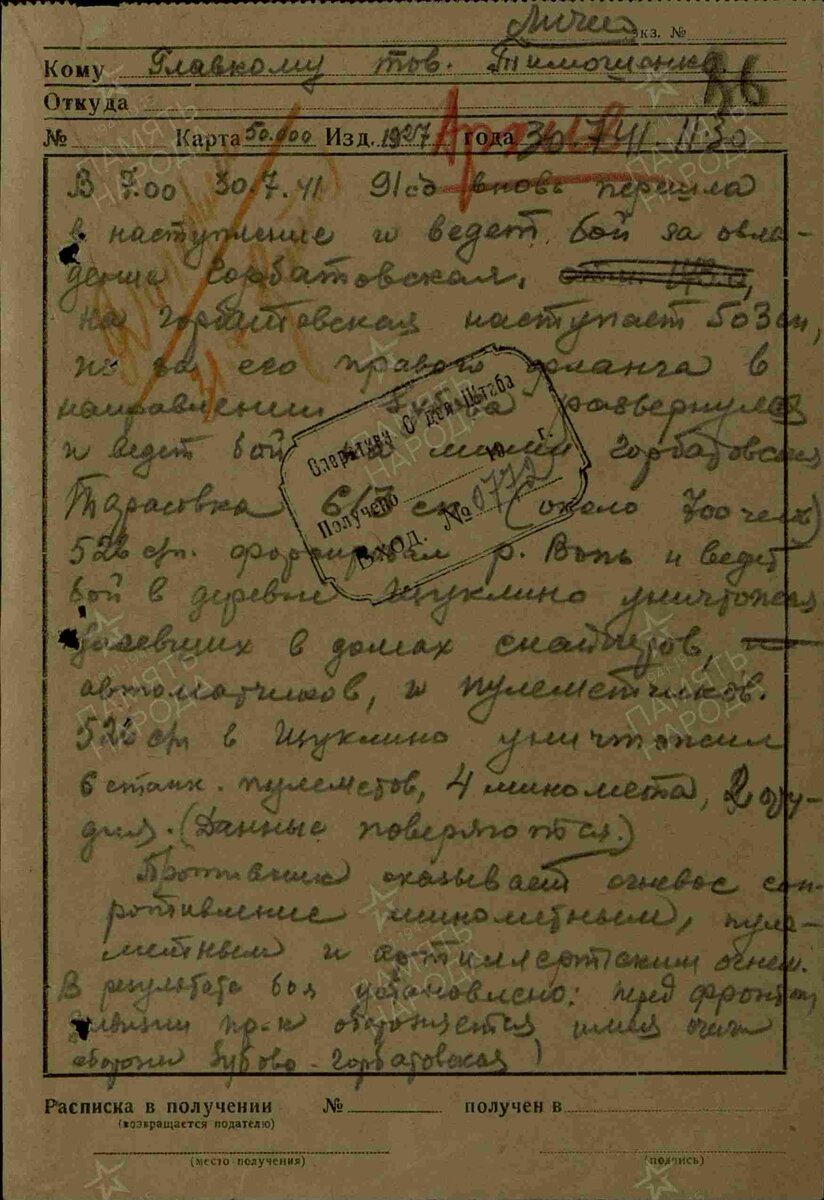 Лично экз. №
Кому Главкому тов. Тимошенко
Откуда
№ Карта 50.000 Изд. 1927 года 30.7.41. 11.30
Архив
В 7.00 30.7.41 91сд вновь перешла
в наступление и ведет бой за овла-
дение Горбатовская,
на Горбатовская наступает 503 сп,
его правого фланга в
направлении развернулся
и ведет бой Горбатовская
Тарасовка 613 сп (около 700 чел.)
526 сп. форсировал р. Вопь и ведет
бой в деревне Щуклино уничтожая
засевших в домах снайперов,
автоматчиков, и пулеметчиков.
526 сп в Щуклино уничтожил
6 станк. пулеметов, 4 миномета, 2 ору-
дия. (Данные поверяются.)
Противник оказывает огневое соп-
ротивление минометным, пуле-
метным и артиллерийским огнем.
В результате боя установлено: перед фронтом
дивизии пр-к обороняется имея очаги
обороны Зубово - Горбатовская
Оперативн. Отдел Штаба
Получено 19 г.
Вход. № 0772
Расписка в получении № получен в
(возвращается подателю)
(место получения) (подпись)
ПАМЯТЬ НАРОДА